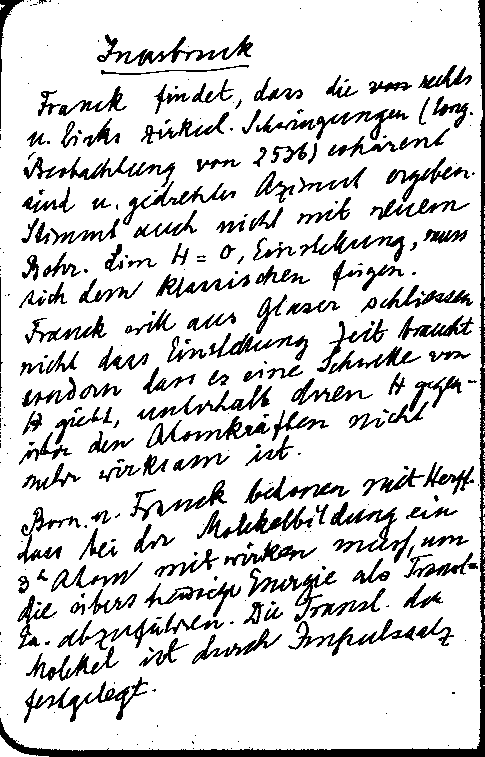 Innsbruck
Franck findet, dass die von rechts
u. links zirkul. Schwingungen (long.
Beobachtung von 2536) cohärent
sind u. gedrehtes Azimut ergeben.
Stimmt auch nicht mit neuem
Bohr. Lim H = 0, Einstellung, muss
sich dem klassischen fügen.
Franck will aus Glaser schliessen
nicht dass Einstellung Zeit braucht
sondern dass es eine Schwelle von
H giebt, unterhalb deren H gegen-
über den Atomkräften nicht
mehr wirksam ist.
Born u. Franck betonen mit Herzf.
dass bei der Molekelbildung ein
3s Atom mitwirken muss, um
die überschüssige Energie als Transl=
En. abzuführen. Die Transl. der
Molekel ist durch Impulssatz
festgelegt.